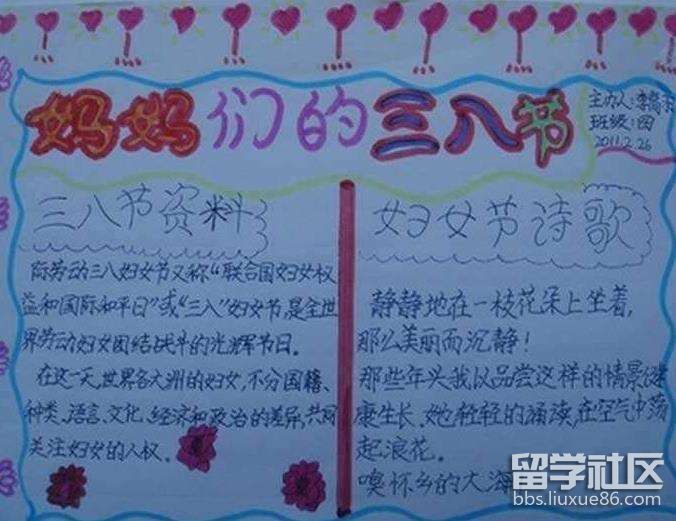 妈妈们的三八节
主办人:李
班级:四
2011.2.26
三八节资料
际劳动三八妇女节又称“联合国妇女权
益和国际和平日”或“三八”妇女节,是全世
界劳动妇女团结战斗的光辉节日。
在这一天,世界各大洲的妇女,不分国籍、
种类、语言、文化、经济和政治的差异,共同
关注妇女的人权。
妇女节诗歌
静静地在一枝花朵上坐着,
那么美丽而沉静!
那些年头我以品尝这样的情景健
康生长,她轻轻的涌读,在空气中荡
起浪花。
嗅怀乡的大海
留学社区
bbs.liuxue86.com